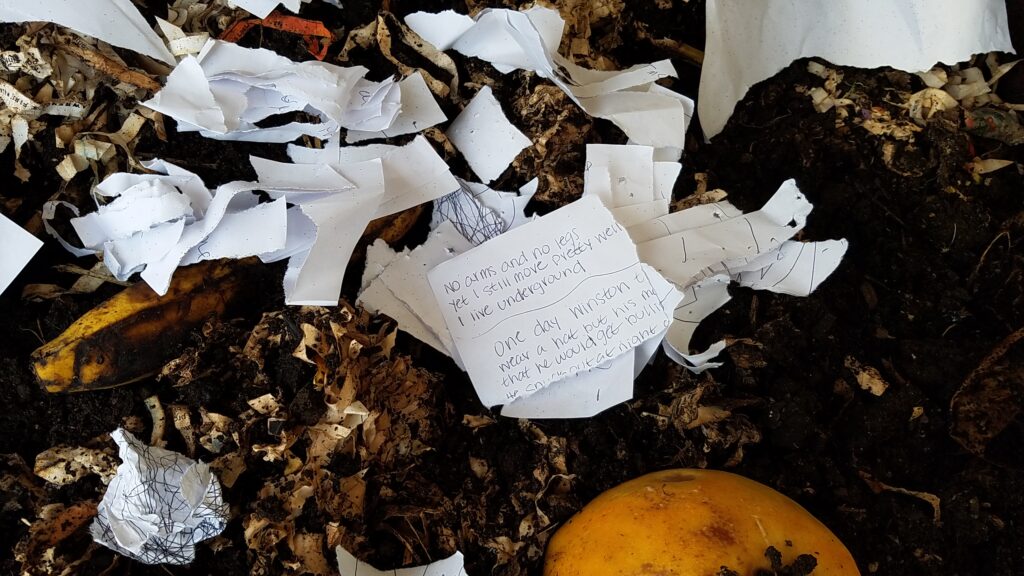 No arms and no legs
Yet I still move pretty well
I live underground
One day Winston
wear a hat but his
that he would get
at night